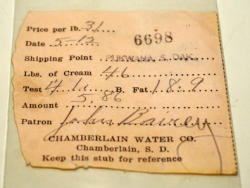 Price per lb. 31
Date 5-12 6698
Shipping Point PUKWANA, S. DAK.
Lbs. of Cream 46
Test 41 B. Fat 18.9
Amount 5.86
Patron John
CHAMBERLAIN WATER CO.
Chamberlain, S. D.
Keep this stub for reference